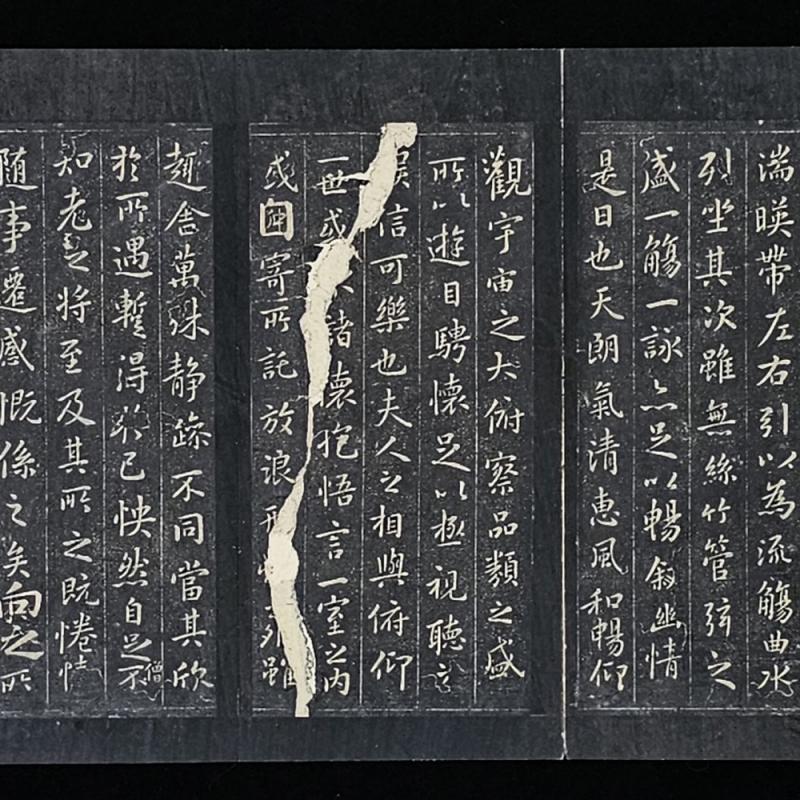 湍暎帶左右引以為流觴曲水
列坐其次雖無絲竹管弦之
盛一觴一詠亦足以暢敘幽情
是日也天朗氣清惠風和暢仰
觀宇宙之大俯察品類之盛
所以遊目騁懷足以極視聽之
娛信可樂也夫人之相與俯仰
一世或諸懷抱悟言一室之內
或因寄所託放浪形外雖
趣舍萬殊靜躁不同當其欣
於所遇暫得於己怏然自足不
僧
知老之將至及其所之既惓情
隨事遷感慨係之矣向之所